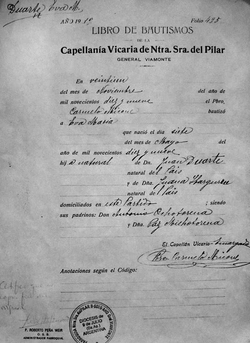 Duarte Eva M.
AÑO 1919 Folio 495
LIBRO DE BAUTISMOS
DE LA
Capellanía Vicaria de Ntra. Sra. del Pilar
GENERAL VIAMONTE
En veintiuno
del mes de Noviembre del año de
mil novecientos diez y nueve el Pbro.
Carmelo Micone bautizó
a Eva María
que nació el día siete
del mes de Mayo del
año de mil novecientos diez y nueve
hija natural de Dn. Juan Duarte
natural del País
y de Dña. Juana Ibarguren
natural del País
domiciliados en este Partido; siendo
sus padrinos: Don Antonio Ochotorena
y Dña. Paz Michotorena
El Capellán Vicario
Pbro. Carmelo Micone
Anotaciones según el Código:
P. ROBERTO PEÑA
DIOCESIS DE
9 DE JULIO